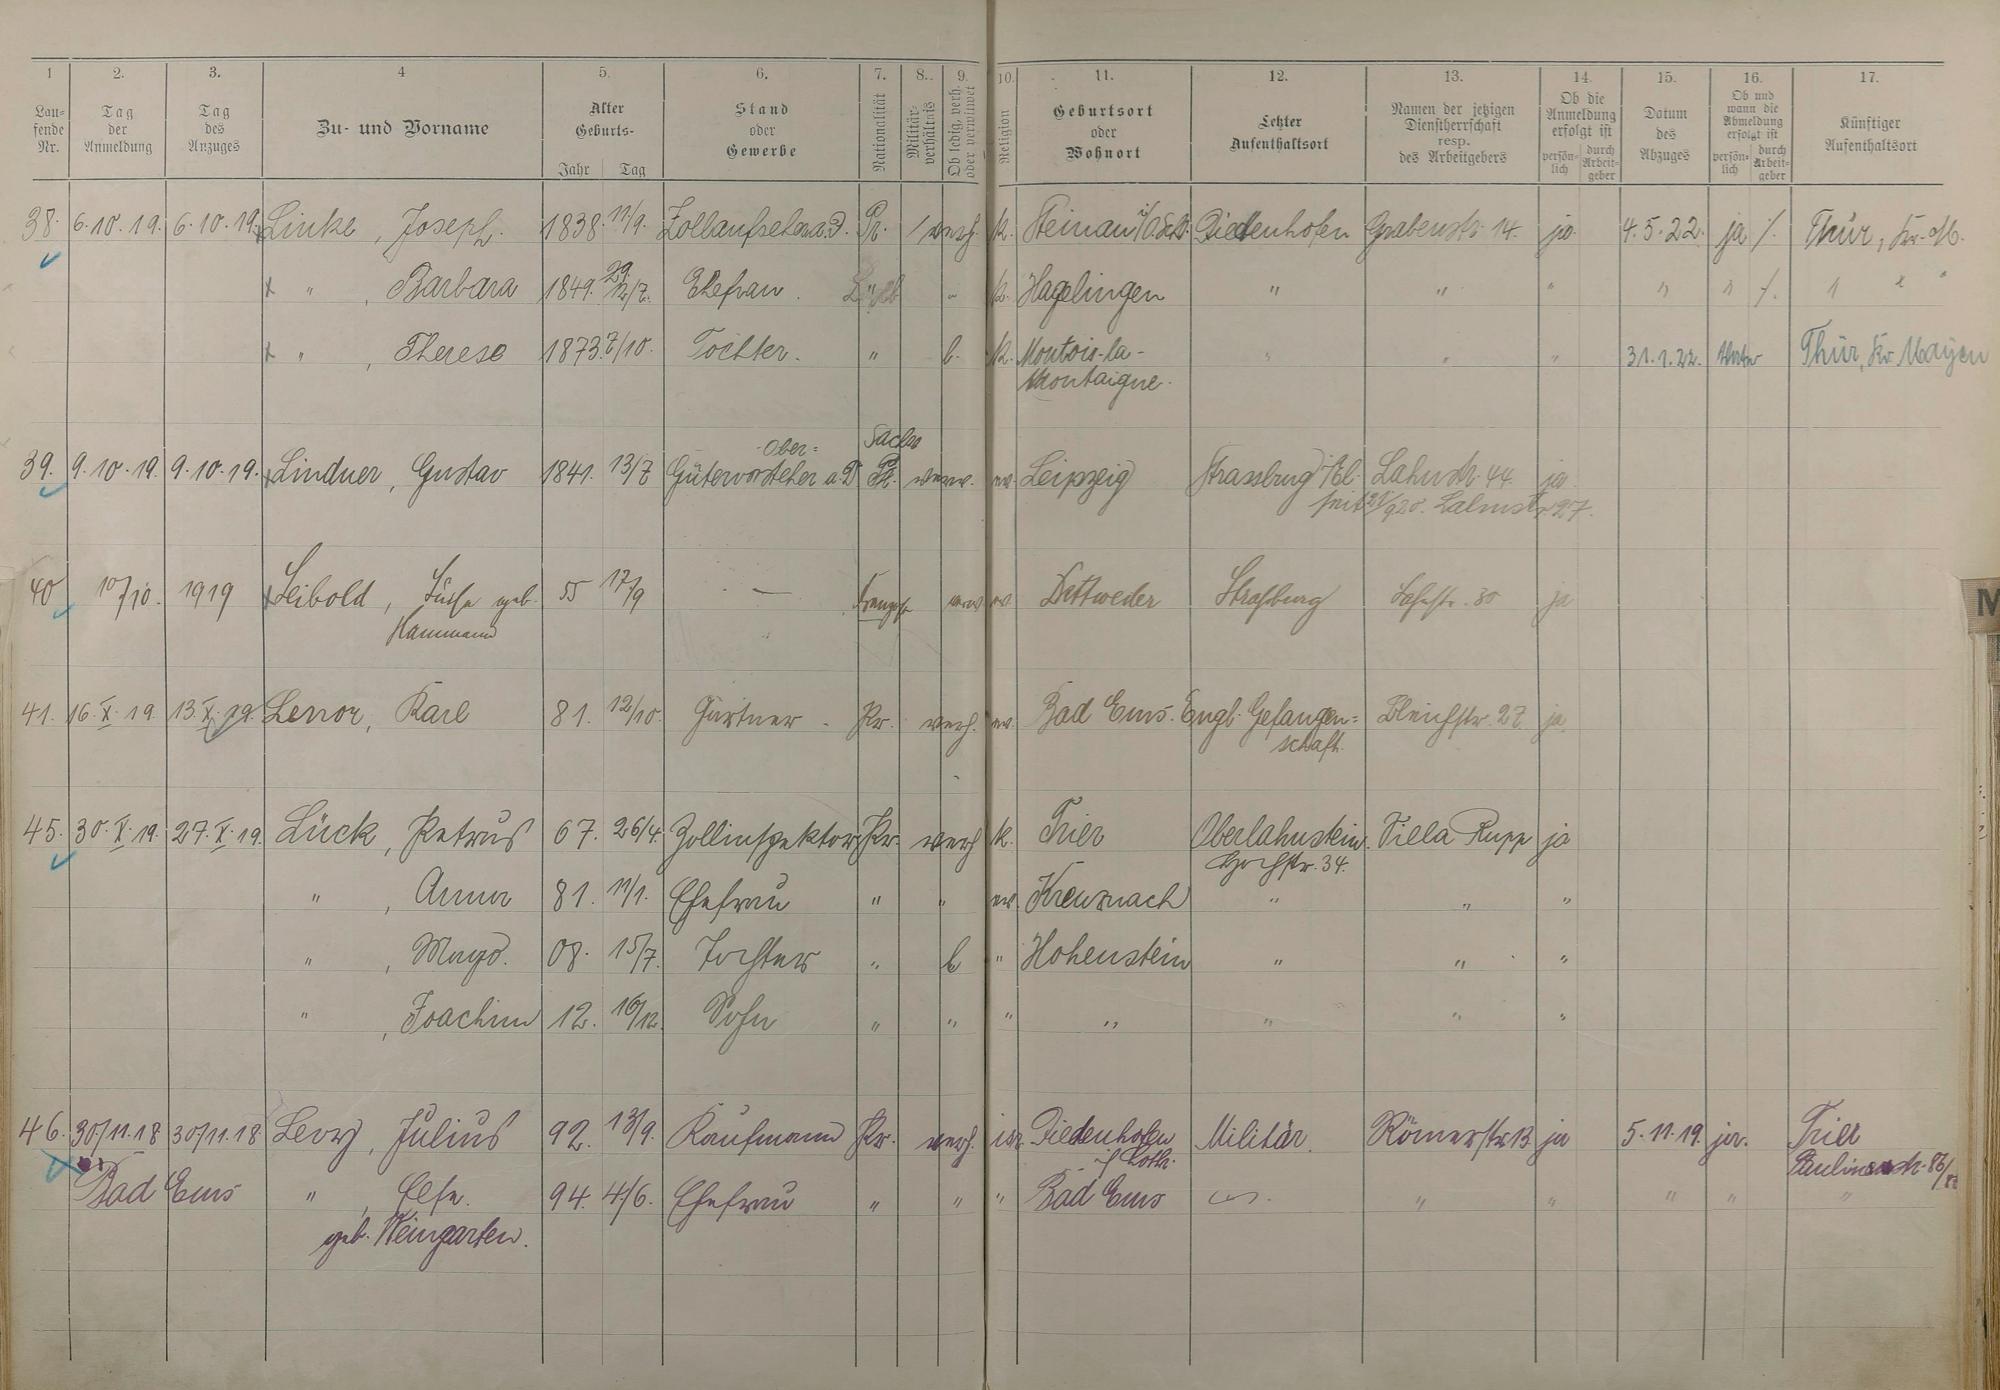 1 2. 3. 4 5. 6. 7. 8. 9. 10. 11. 12. 13. 14. 15. 16. 17.
Lau=fende Nr. Tag der Anmeldung Tag des Anzuges Zu- und Vorname Alter Geburts- Jahr Tag Stand oder Gewerbe Nationalität Militär-verhältnis Ob ledig, verh. oder verwitwet Religion Geburtsort oder Wohnort Letzter Aufenthaltsort Namen der jetzigen Dienstherrschaft resp. des Arbeitgebers Ob die Anmeldung erfolgt ist persön-lich durch Arbeit-geber Datum des Abzuges Ob und wann die Abmeldung erfolgt ist persön-lich durch Arbeit-geber Künftiger Aufenthaltsort
38. 6.10.19. 6.10.19. Linke, Joseph. 1838. 11/9. Zollaufseher a.D. Pr. verh. k. Steinau Diedenhofen Grabenstr. 14. ja. 4.5.22. ja /. Thür, Kr. M.
x " , Barbara 1849. 29. 12/7. Ehefrau. " k. Hagelingen " " " " " /. " " "
x " , Therese 1873. 7/10. Tochter. " l. k. Montois-la- " " " 31.1.22. Vater Thür, Kr. Mayen
Montaigne.
Ober= Sachse
39. 9.10.19. 9.10.19. x Lindner, Gustav 1841. 13/7 Gütervorsteher a.D Pr. verw. ev. Leipzig Strassburg i/El. Lahnstr. 44. ja.
seit 920. Lahnstr 27.
40 10/10. 1919 x Leibold, geb. 55 17/9 — verw ev Dettweder Straßburg 30 ja
Hammann
41. 16.X.19. 13.X.19. Lenor, Karl 81. 12/10. Gärtner - Pr. verh. ev. Bad Ems. Engl. Gefangen= Bleichstr. 27. ja.
schaft.
45. 30.X.19. 27.X.19. Lück, Petrus 67. 26/4. Zollinspektor Pr. verh k. Trier Oberlahnstein. Villa Rupp ja
Hochstr. 34.
" , Anna 81. 11/1. Ehefrau " " ev. Kreuznach " " "
" , Magd. 08. 15/7. Tochter " l " Hohenstein " " "
" , Joachim 12. 16/12. Sohn " " " " " " "
46. 30/11.18 30/11.18 Levy, Julius 92. 13/9. Kaufmann Pr. verh. isr. Diedenhofen Militär. Römerstr 13 ja 5.11.19. ja. Trier
i/ Loth. Paulinstr. 86/
Bad Ems " , Else. 94. 4/6. Ehefrau " " " Bad Ems " " " " "
geb. Weingarten.
M